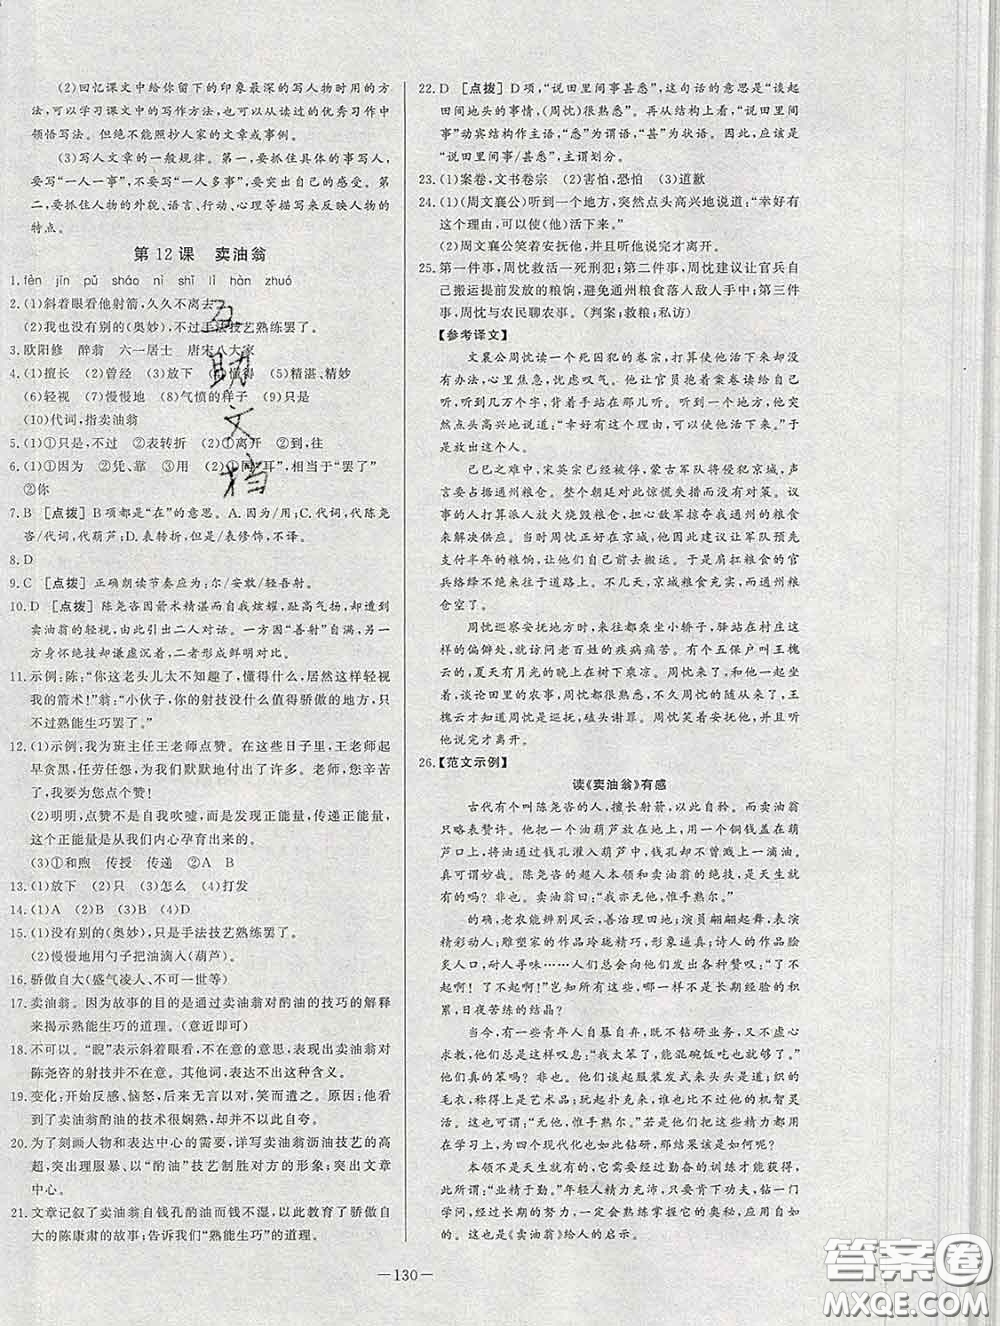 (2)回忆课文中给你留下的印象最深的写人物时用的方
法,可以学习课文中的写作方法,也可以从读过的优秀习作中
领悟写法。但绝不能照抄人家的文章或事例。
(3)写人文章的一般规律。第一,要抓住具体的事写人,
要写“一人一事”,不要写“一人多事”,要突出自己的感受。第
二,要抓住人物的外貌、语言、行动、心理等描写来反映人物的
特点。
第12课 卖油翁
1. fèn jīn pǔ sháo nì shǐ lì hàn zhuó
2. (1)斜着眼看他射箭,久久不离去。
(2)我也没有别的(奥妙),不过手法技艺熟练罢了。
3. 欧阳修 醉翁 六一居士 唐宋八大家
4. (1)擅长 (2)曾经 (3)放下 (4)懂得 (5)精湛、精妙
(6)轻视 (7)慢慢地 (8)气愤的样子 (9)只是
(10)代词,指卖油翁
5. (1)①只是,不过 ②表转折 (2)①离开 ②到,往
6. (1)①因为 ②凭、靠 ③用 (2)①同“耳”,相当于“罢了”
②你
7. B [点拨] B项都是“在”的意思。A.因为/用;C.代词,代陈尧
咨/代词,代葫芦;D.表转折,然后/语气助词,不译。
8. D
9. C [点拨] 正确朗读节奏应为:尔/安敢/轻吾射。
10. D [点拨] 陈尧咨因箭术精湛而自我炫耀,趾高气扬,却遭到
卖油翁的轻视,由此引出二人对话。一方因“善射”自满,另一
方身怀绝技却谦虚沉着,二者形成鲜明对比。
11. 示例:陈:“你这老头儿太不知趣了,懂得什么,居然这样轻视
我的箭术!”翁:“小伙子,你的射技没什么值得骄傲的地方,只
不过熟能生巧罢了。”
12. (1)示例:我为班主任王老师点赞。在这些日子里,王老师起
早贪黑、任劳任怨,为我们默默地付出着。老师,您辛苦了,我
为您点个赞!
(2)明明,点赞不是自我吹嘘,而是发现正能量、传播正能量,
这个正能量是从我们内心孕育出来的。
(3)①和煦 传授 传递 ②A B
13. (1)放下 (2)只 (3)怎么 (4)打发
14. (1)A (2)B (3)C (4)D
15. (1)没有别的(奥妙),只是手法技艺熟练罢了。
(2)慢慢地用勺子把油滴入(葫芦)。
16. 骄傲自大(盛气凌人、不可一世等)
17. 卖油翁。因为故事的目的是通过卖油翁对酌油的技巧的解释
来揭示熟能生巧的道理。(意近即可)
18. 不可以。“睨”表示斜着眼看,不在意的意思,表现出卖油翁对
陈尧咨的射技并不在意。其他词,表达不出这种含义。
19. 变化:开始反感、恼怒,后来无言以对,笑而遣之。因为他看到
了卖油翁酌油的技术很娴熟,却并不以此自夸。
20. 为了刻画人物和表达中心的需要,详写卖油翁沥油技艺的高
超,突出理服暴、以“酌油”技艺制胜对方的形象;突出文章
中心。
21. 文章记叙了卖油翁自钱孔酌油而钱不湿,以此教育了骄傲自
大的陈康肃的故事;告诉我们“熟能生巧”的道理。
22. D [点拨] D项,“说田里间事甚悉”,这句话的意思是“谈起
田间地头的事情,(周忱)很熟悉”。再从结构上分析,“说田里
间事”动宾结构作主语,“悉”为谓语,“甚”为状语。因此,应该是
“说田里间事/甚悉”,主谓划分。
23. (1)案卷,文书卷宗 (2)害怕,恐怕 (3)道歉
24. (1)(周文襄公)听到一个地方,突然点头高兴地说道:“幸好有
这个理由,可以使(他)活下来。”
(2)周文襄公笑着安抚他,并且听他说完离开。
25. 第一件事,周忱救活一死刑犯;第二件事,周忱建议让官兵自
己搬运提前发放的粮饷,避免通州粮食落入敌人手中;第三件
事,周忱与农民聊农事。(判案;救粮;私访)
【参考译文】
文襄公周忱读一个死囚犯的卷宗,打算使他活下来却
没有办法,心里焦急,忧虑叹气。他让官员抱着案卷读给他
听,听到几万个字,背着手站在那里听。听到一个地方,他突
然点头高兴地说道:“幸好有这个理由,可以使他活下来。”于
是放出这个人。
己巳之难中,宋英宗已经被俘,蒙古军队将侵犯京城,声
言要占据通州粮仓。整个朝廷对此惊慌失措而没有对策。议
事的人打算派人放火烧毁粮仓,担心敌军掠夺我通州的粮食
来解决供应。当时周忱正好在京城,他因此建议让军队预先
支付半年的粮饷,让他们去搬运。于是肩扛粮食的官
兵络绎不绝于道路上。不几天,京城粮食充实,而通州粮
仓空了。
周忱巡察安抚地方时,来往都乘坐小轿子,驿站在村庄
的偏僻处,就访问老百姓的疾病痛苦。有个五保户叫王槐
云的,夏天有月光的晚上在树下乘凉。周忱也跟着他躺下
来,谈论田里的事,周忱都很熟悉。周忱的随从来了,王
槐云才知道是周忱,磕头谢罪。周忱笑着安抚他,并且
听他说完才离开。
26. 【范文示例】
读《卖油翁》有感
古代有个叫陈尧咨的人,擅长射箭,以此自矜。而卖油翁
只略表赞许。他把一个油葫芦放在地上,用一个铜钱盖在葫
芦口上,将油通过钱孔灌入葫芦中,钱上却没有沾上一滴油。
真可谓妙哉。陈尧咨的超人本领和卖油翁的绝技,是天生就
有的吗?非也。卖油翁曰:“我亦无他,惟手熟尔。”
的确,老农能辨别风云,善治理田地;演员翩翩起舞,表演
精彩动人;雕塑家的作品玲珑精巧,形象逼真;诗人的作品脍
炙人口,耐人寻味……人们总会发出各种赞叹:“了不
起啊!了不起啊!”岂知这些都是他们长期经验的积
累,日夜苦练的结晶?
当今,有一些青年人自暴自弃,既不钻研业务,又不虚心
求教,他们总是这样叹息:“我太笨了,能混碗饭吃也就可以
了。”他们真笨吗?非也。他们谈起服装发式来头头是道;织
的毛衣,称得上是精彩;玩起扑克来,也不乏他们的机智灵
活。为何?“无他,惟手熟尔。”假如他们把这些精力都用
在学习上,为四个现代化也如此钻研,那结果该是如何呢?
本领不是天生就有的,它需要经过勤奋的训练才能获得,
此所谓:“业精于勤。”年轻人精力充沛,只要肯下功夫,钻一门
学问,经过长期的努力,一定会探索它的奥秘,应用自如的。
这也是《卖油翁》给人的启示。
互
助
文
档
—130—
答案圈
MXQE.COM